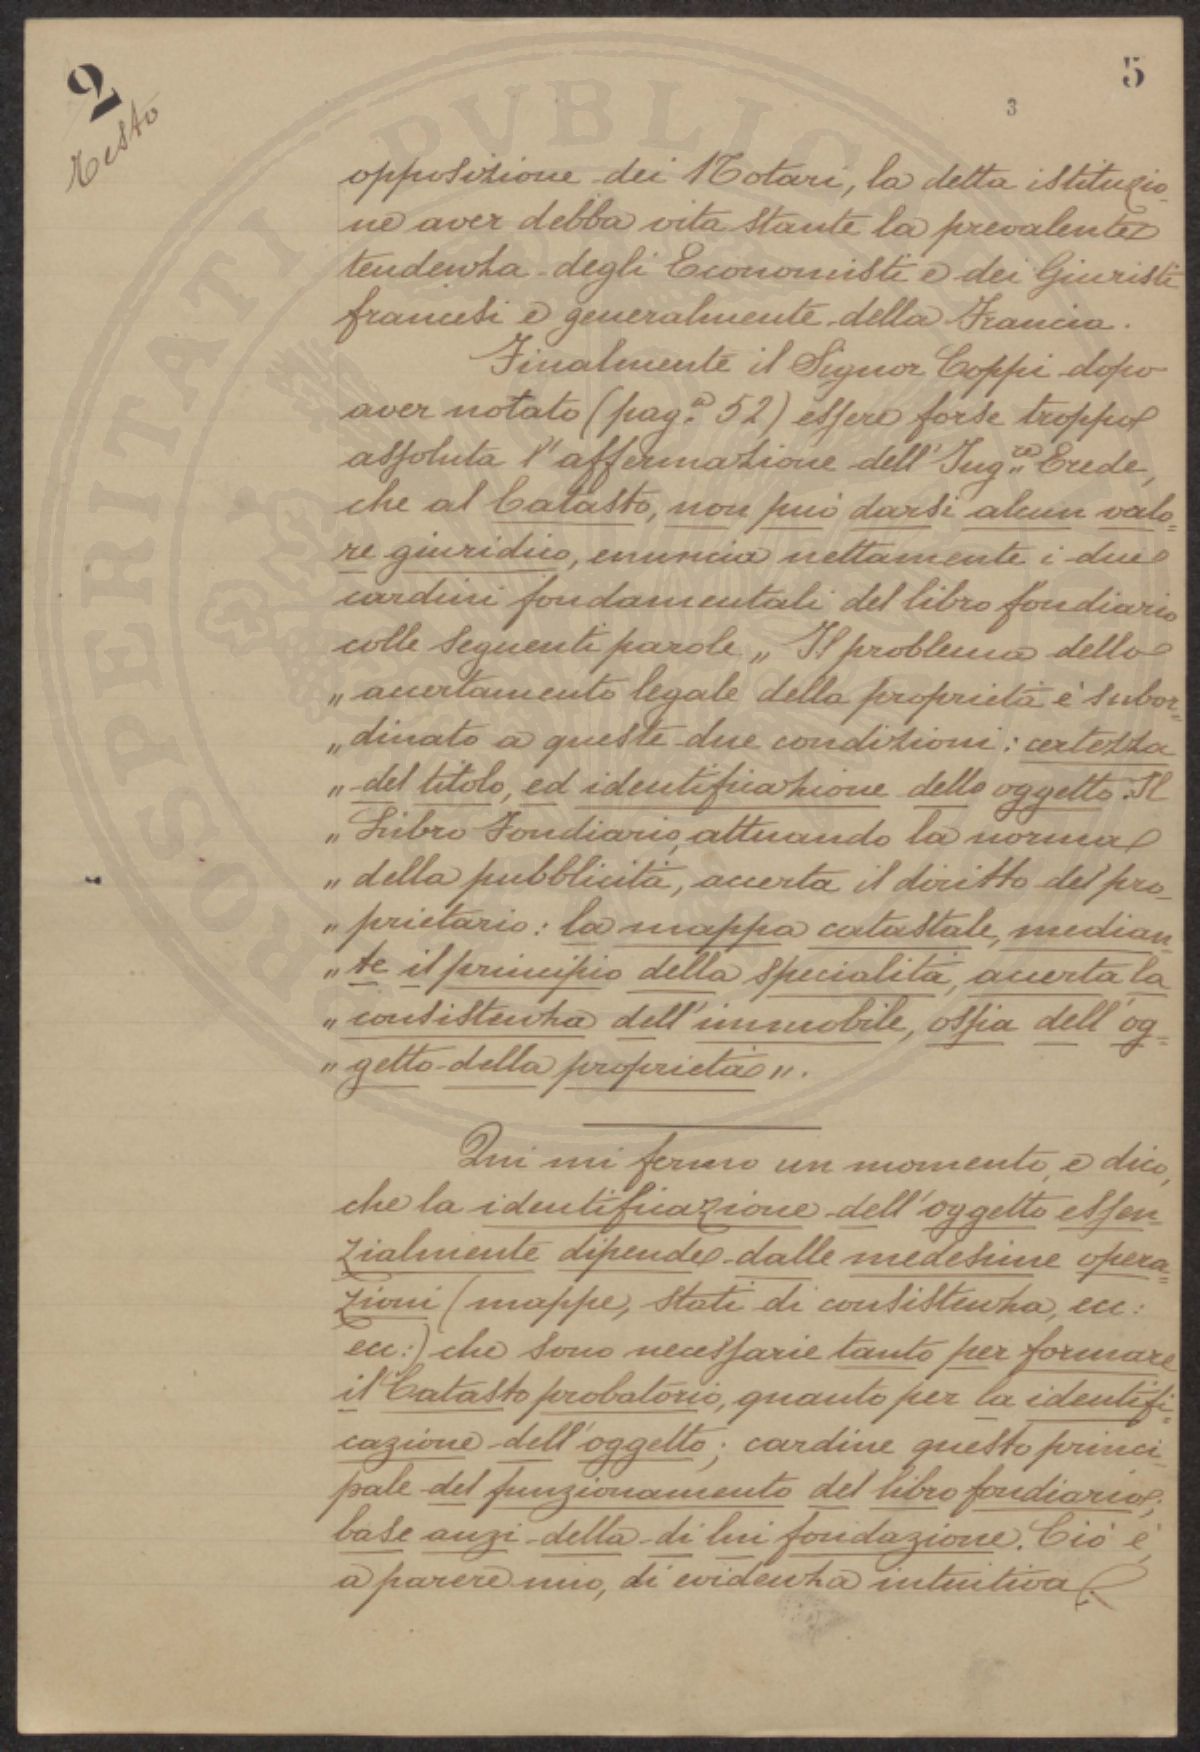 2
Testo
5
3
opposizione dei Notari, la detta istituzio-
ne aver debba vita stante la prevalente
tendenza degli Economisti e dei Giuristi
francesi e generalmente della Francia.
Finalmente il Signor Coppi dopo
aver notato (pag.ª 52) essere forse troppo
assoluta l'affermazione dell'Ing.re Erede,
che al Catasto, non può darsi alcun valo=
re giuridico, enuncia nettamente i due
cardini fondamentali del libro fondiario
colle seguenti parole „ Il problema dello
„ accertamento legale della proprietà è subor=
„ dinato a queste due condizioni: certezza
„ del titolo, ed identificazione dello oggetto. Il
„ Libro Fondiario, attuando la norma
„ della pubblicità, accerta il diritto del pro-
„ prietario: la mappa catastale, median-
„ te il principio della specialità, accerta la
„ consistenza dell'immobile, ossia dell'og-
„ getto della proprietà „.
Qui mi fermo un momento, e dico,
che la identificazione dell'oggetto essen-
zialmente dipende dalle medesime opera-
zioni (mappe, stati di consistenza, ecc:
ecc:) che sono necessarie tanto per formare
il Catasto probatorio, quanto per la identifi-
cazione dell'oggetto; cardine questo princi-
pale del funzionamento del libro fondiario;
base anzi della di lui fondazione. Ciò è,
a parere mio, di evidenza intuitiva.
PROSPERITATI PVBLICAE